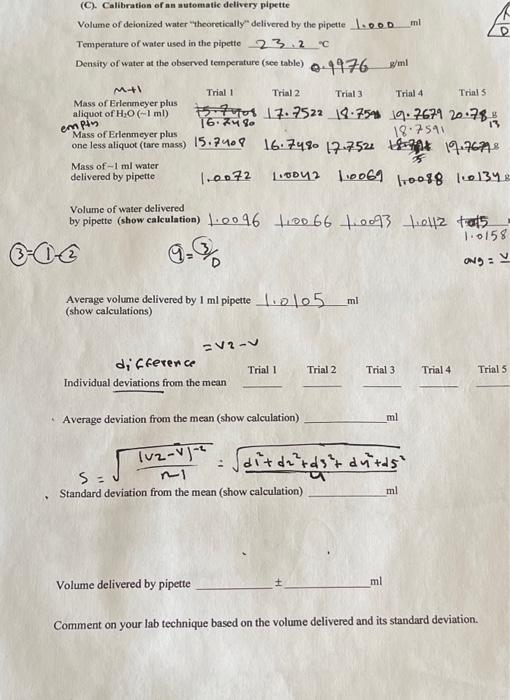 (C). Calibration of an automatic delivery pipette
Volume of deionized water "theoretically" delivered by the pipette 1.000 ml
Temperature of water used in the pipette 23.2 °C
Density of water at the observed temperature (see table) 0.9976 g/ml
M+1
Trial 1 Trial 2 Trial 3 Trial 4 Trial 5
Mass of Erlenmeyer plus
aliquot of H2O (~1 ml) 15.7408 17.7522 18.7591 19.7679 20.7813
16.7480 18.7591
empty
Mass of Erlenmeyer plus
one less aliquot (tare mass) 15.7408 16.7480 17.7522 19.7679
Mass of ~1 ml water
delivered by pipette 1.0072 1.0042 1.0069 1.0088 1.0134
Volume of water delivered
by pipette (show calculation) 1.0096 1.0066 1.0093 1.0112
1.0158
③=①-② 4=③/D avg = V
Average volume delivered by 1 ml pipette 1.0105 ml
(show calculations)
=V2-V
difference
Trial 1 Trial 2 Trial 3 Trial 4 Trial 5
Individual deviations from the mean
Average deviation from the mean (show calculation) ml
S = √ |V2-V|-2 / n-1 = √ d1²+d2²+d3²+d4²+d5² / 4
Standard deviation from the mean (show calculation) ml
Volume delivered by pipette ± ml
Comment on your lab technique based on the volume delivered and its standard deviation.